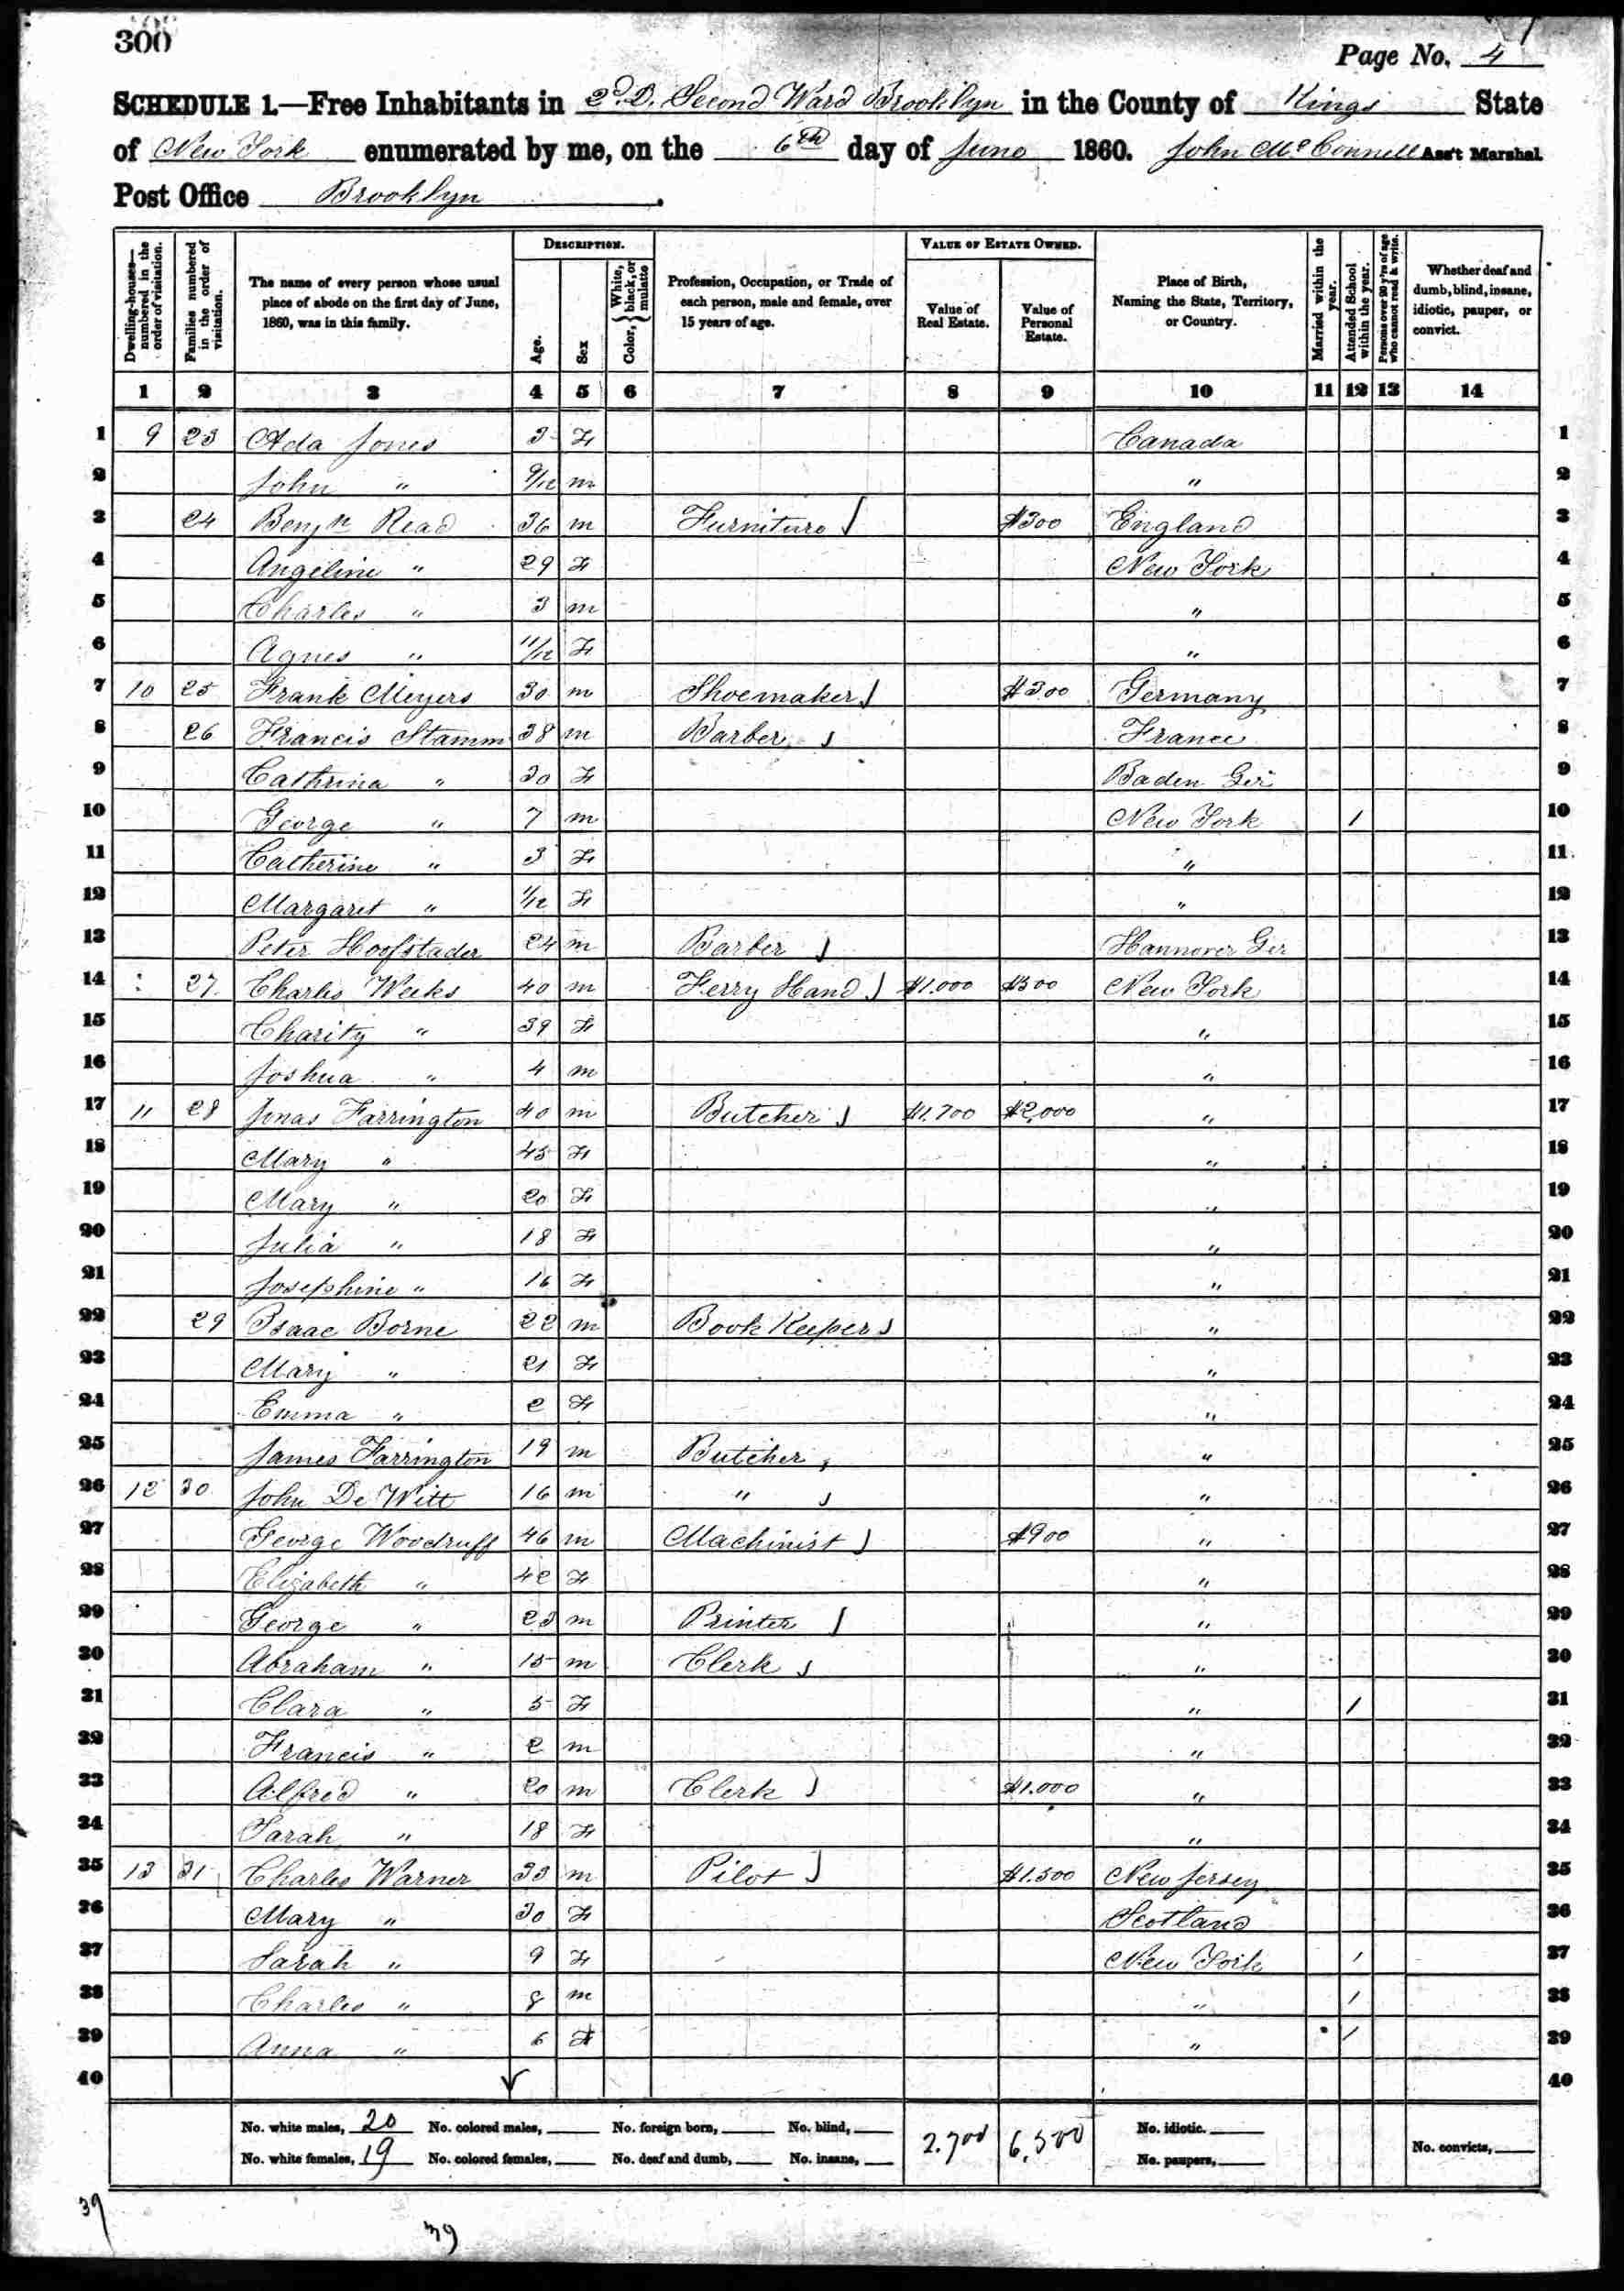 300
Page No. 4
SCHEDULE 1.—Free Inhabitants in 2d D. Second Ward Brooklyn in the County of Kings State
of New York enumerated by me, on the 6th day of June 1860. John McConnell Ass't Marshal.
Post Office Brooklyn.
Dwelling-houses—numbered in the order of visitation.
Families numbered in the order of visitation.
The name of every person whose usual place of abode on the first day of June, 1860, was in this family.
DESCRIPTION.
Age.
Sex
Color, { White, black, or mulatto
Profession, Occupation, or Trade of each person, male and female, over 15 years of age.
VALUE OF ESTATE OWNED.
Value of Real Estate.
Value of Personal Estate.
Place of Birth, Naming the State, Territory, or Country.
Married within the year.
Attended School within the year.
Persons over 20 y'rs of age who cannot read & write.
Whether deaf and dumb, blind, insane, idiotic, pauper, or convict.
1 2 3 4 5 6 7 8 9 10 11 12 13 14
1 9 23 Ada Jones 3 F Canada 1
2 John " 9/12 m " 2
3 24 Benjn Read 36 m Furniture $300 England 3
4 Angeline " 29 F New York 4
5 Charles " 3 m " 5
6 Agnes " 11/12 F " 6
7 10 25 Frank Meyers 30 m Shoemaker $300 Germany 7
8 26 Francis Stamm 38 m Barber France 8
9 Cathrina " 30 F Baden Ger 9
10 George " 7 m New York 1 10
11 Catherine " 3 F " 11
12 Margaret " 1/12 F " 12
13 Peter Hoofstader 24 m Barber Hannover Ger 13
14 27 Charles Weeks 40 m Ferry Hand $1.000 $300 New York 14
15 Charity " 39 F " 15
16 Joshua " 4 m " 16
17 11 28 Jonas Farrington 40 m Butcher $1.700 $2,000 " 17
18 Mary " 45 F " 18
19 Mary " 20 F " 19
20 Julia " 18 F " 20
21 Josephine " 16 F " 21
22 29 Isaac Borne 22 m Book Keeper " 22
23 Mary " 21 F " 23
24 Emma " 2 F " 24
25 James Farrington 19 m Butcher " 25
26 12 30 John De Witt 16 m " " 26
27 George Woodruff 46 m Machinist $900 " 27
28 Elizabeth " 42 F " 28
29 George " 23 m Printer " 29
30 Abraham " 15 m Clerk " 30
31 Clara " 5 F " 1 31
32 Francis " 2 m " 32
33 Alfred " 20 m Clerk $1.000 " 33
34 Sarah " 18 F " 34
35 13 31 Charles Warner 33 m Pilot $1.500 New Jersey 35
36 Mary " 30 F Scotland 36
37 Sarah " 9 F New York 1 37
38 Charles " 8 m " 1 38
39 Anna " 6 F " 1 39
40 40
No. white males, 20 No. colored males, No. foreign born, No. blind, 2.700 6,500 No. idiotic.
No. white females, 19 No. colored females, No. deaf and dumb, No. insane, No. paupers, No. convicts,
39
39